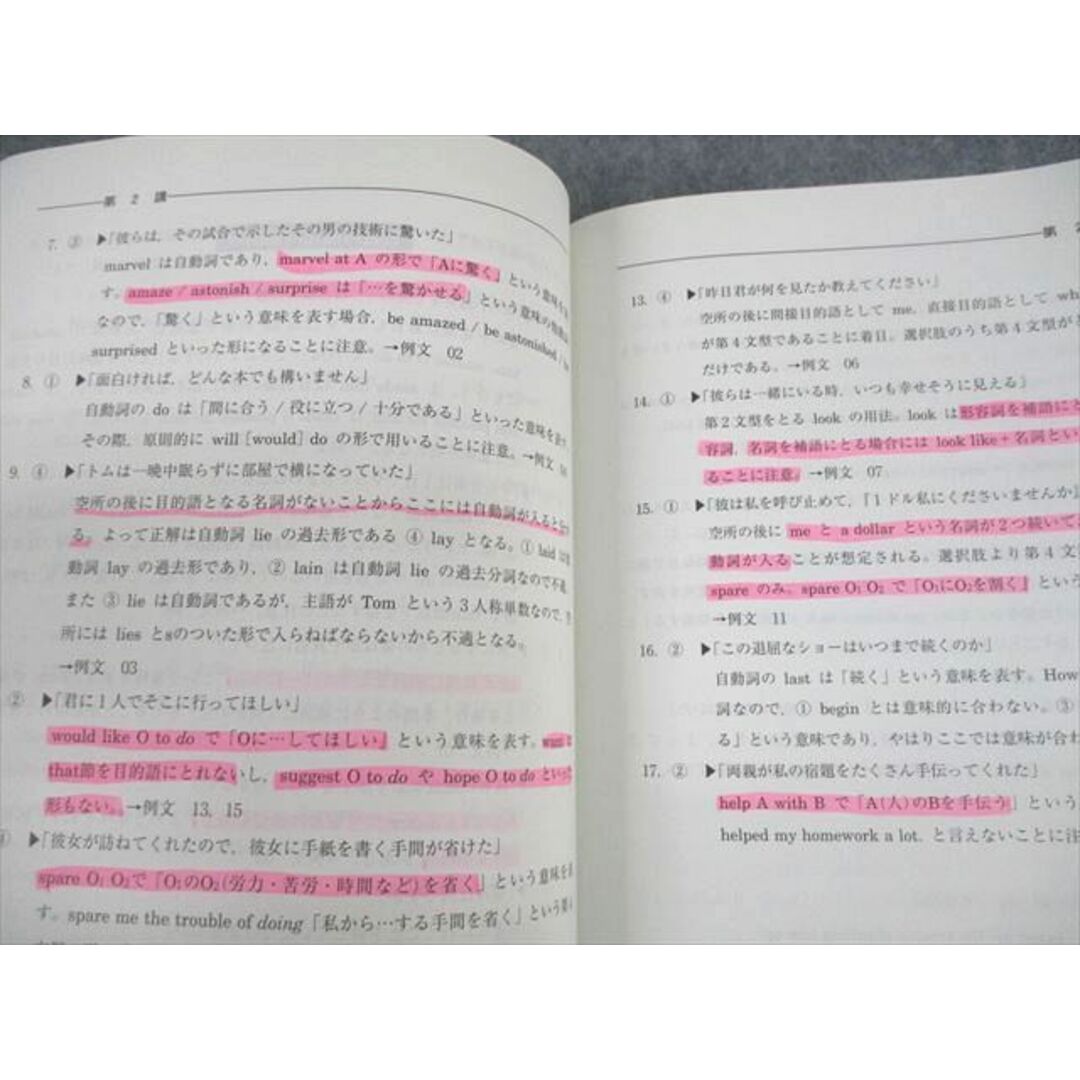 第 2 講
7. ③ ▶「彼らは，その試合で示したその男の技術に驚いた」
marvel は自動詞であり，marvel at A の形で「Aに驚く」という意味を
す。amaze / astonish / surprise は「…を驚かせる」という意味の他動詞
なので，「驚く」という意味を表す場合，be amazed / be astonished / be
surprised といった形になることに注意。→例文 02
8. ① ▶「面白ければ，どんな本でも構いません」
自動詞の do は「間に合う / 役に立つ / 十分である」といった意味を表す。
その際，原則的に will [would] do の形で用いることに注意。→例文
9. ④ ▶「トムは一晩中眠らずに部屋で横になっていた」
空所の後に目的語となる名詞がないことからここには自動詞が入るとなる
る。よって正解は自動詞 lie の過去形である ④ lay となる。① laid は
動詞 lay の過去形であり，② lain は自動詞 lie の過去分詞なので不適
また ③ lie は自動詞であるが，主語が Tom という3人称単数なので，
所には lies とsのついた形で入らねばならないから不適となる。
→例文 03
② ▶「君に1人でそこに行ってほしい」
would like O to do で「Oに…してほしい」という意味を表す。
that節を目的語にとれないし，suggest O to do や hope O to do といった
形もない。→例文 13, 15
▶「彼女が訪ねてくれたので，彼女に手紙を書く手間が省けた」
spare O₁ O₂で「O₁のO₂(労力・苦労・時間など)を省く」という意味を
す。spare me the trouble of doing「私から…する手間を省く」という
第 2
13. ④ ▶「昨日君が何を見たか教えてください」
空所の後に間接目的語として me，直接目的語として wh
が第4文型であることに着目。選択肢のうち第4文型が
だけである。→例文 06
14. ① ▶「彼らは一緒にいる時，いつも幸せそうに見える」
第2文型をとる look の用法。look は形容詞を補語にと
容詞，名詞を補語にとる場合には look like + 名詞とい
ることに注意。→例文 07
15. ① ▶「彼は私を呼び止めて，『1ドル私にくださいませんか
空所の後に me と a dollar という名詞が2つ続いて
動詞が入ることが想定される。選択肢より第4文
spare のみ。spare O₁ O₂ で「O₁にO₂を割く」という
→例文 11
16. ② ▶「この退屈なショーはいつまで続くのか」
自動詞の last は「続く」という意味を表す。How
詞なので，① begin とは意味的に合わない。③
る」という意味であり，やはりここでは意味が合わ
17. ② ▶「両親が私の宿題をたくさん手伝ってくれた」
help A with B で「A(人)のBを手伝う」という
helped my homework a lot. と言えないことに注